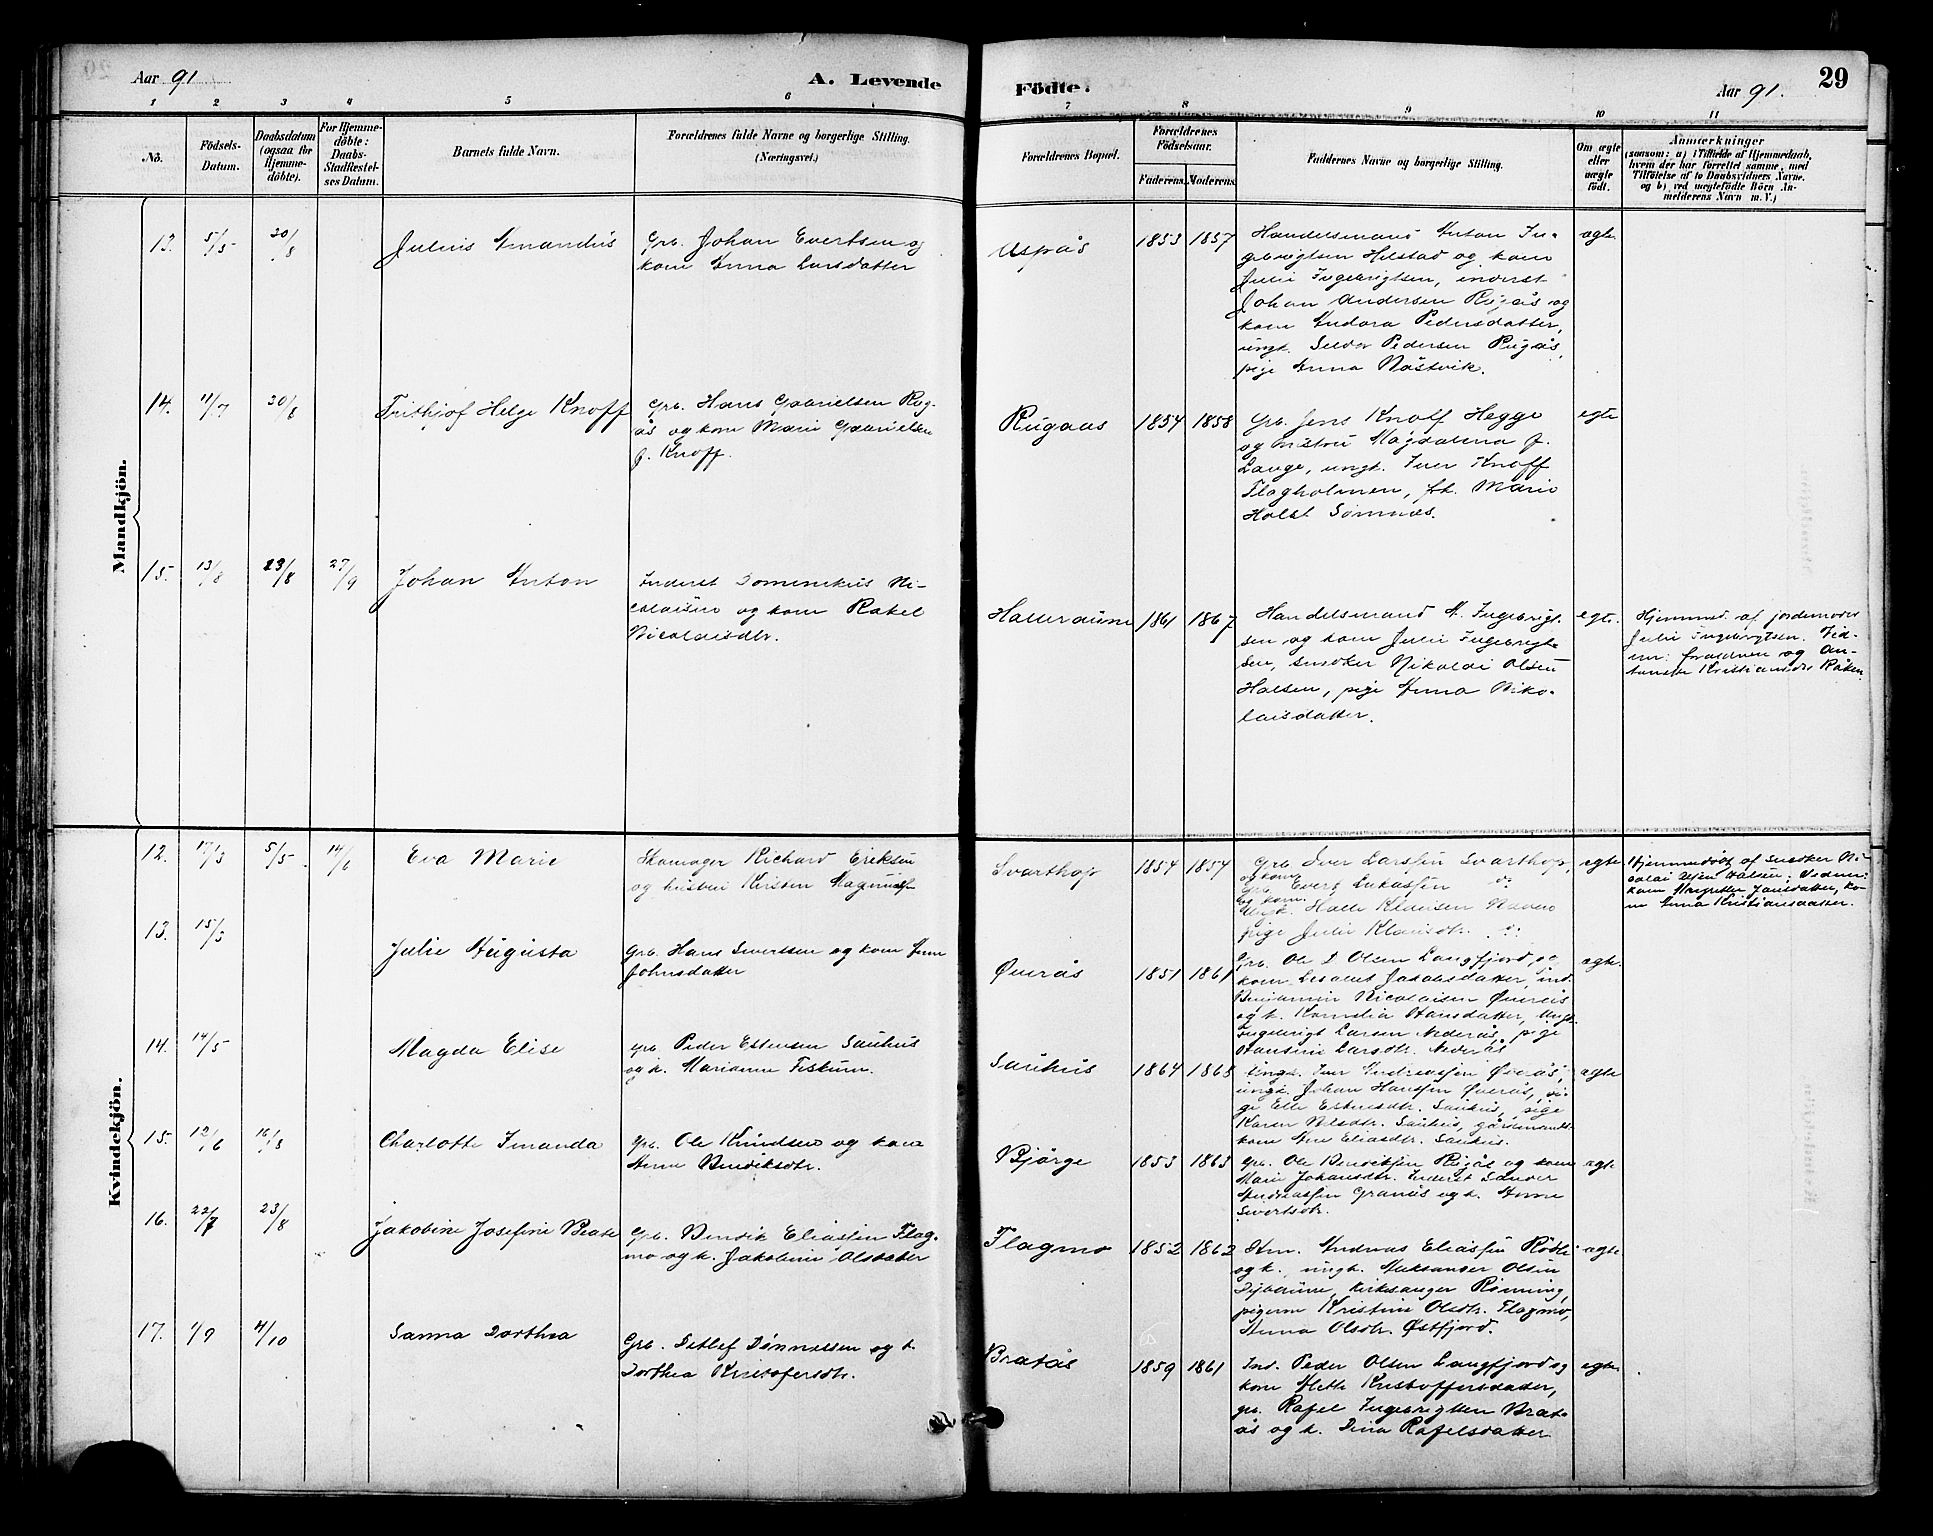 Aar 91
A. Levende
Födte.
Aar 91.
29
1 2 3 4 5 6 7 8 9 10 11
No.
Födsels-
Datum.
Daabsdatum
(ogsaa for
Hjemme-
döbte).
For Hjemme-
döbte:
Daabs-
Stadfæstel-
ses Datum.
Barnets fulde Navn.
Forældrenes fulde Navne og borgerlige Stilling.
(Næringsvei.)
Forældrenes Bopæl.
Forældrenes
Födselsaar.
Faderens. Moderens.
Faddernes Navne og borgerlige Stilling.
Om ægte
eller
uægte
født.
Anmærkninger
(saasom: a) i Tilfælde af Hjemmedaab,
hvem der har forrettet samme, med
Tilföielse af to Daabsvidners Navne,
og b) ved uægtefödte Börn An-
melderens Navn m. V.)
Mandkjön.
13. 5/5 30/8 Julius Amandus
Grb. Johan Evertsen og
kone Anna Larsdatter
Aspås 1853 1857
Handelsmand Anton In-
gebrigtsen Helstad og kone
Julie Ingebrigtsen, inderst
Johan Andersen Rugås og
kone Andora Pedersdatter,
ungk. Selder Pedersen Rugås,
pige Anna Nåstvik.
ægte
14. 11/7 30/8 Frithjof Helge Knoff
Grb. Hans Gabrielsen Rug-
ås og kone Marie Gabrielsen
f. Knoff.
Rugaas 1854 1858
Grb. Jens Knoff Hegge
og hustru Magdalena f.
Lange, ungk. Iver Knoff
Flagholmen, frk. Marie
Holst Sömnæs.
egte
15. 13/8 23/8 27/9 Johan Anton
Inderst Dominikus Ni-
colaisen og kone Rakel
Nicolaisdtr.
Halleraune 1861 1867
Handelsmand A. Ingebrigt-
sen og kone Julie Ingebrigt-
sen, snedker Nikolai Olsen
Halsen, pige Anna Niko-
laisdatter.
egte.
Hjemmed. af jordemoder
Julie Ingebrigtsen. Vid-
ner: forældrene og An-
Kristiansdtr
Kvindekjön.
12. 17/3 5/5 14/6 Eva Marie
Skomager Richard Eriksen
og hustru Kirsten
Svarthop 1854 1854
Grb. Iver Larssen Svarthop,
og kone
Grb. Evert Lukassen do
og kone.
Ungk. Halle Klausen
pige Julie Klausdtr. do
egte
Hjemmedöbt af Snedker Ni-
colai Olsen Halsen; Vidner:
kone Margrethe Jansdatter, ko-
ne Anna Kristiansdatter.
13. 15/3 Julie Augusta
Grb. Hans Sivertsen og kone Anne
Johnsdatter
Øveraas 1851 1861
Grb. Ole D Olsen Langfjord, og
kone Jakobsdatter, ind.
Benjamin Nicolaisen Øveraas
og k. Kornelia Hansdatter, ungk.
Ingebrigt Larsen Nederås, pige
Hansine Larsdtr. Nederås
ægte.
14. 14/5 Magda Elise
Grb. Peder Estensen Sauhus
og k. Marianne Fiskum.
Sauhus 1864 1868
Ungk. Iver Andreassen Överås,
ungk. Johan Hanssen Överås, pi-
ge Elle Estensdtr. Sauhus, pige
Karen Nilsdtr. Sauhus, gårdmands-
kone Ane Eliasdtr. Sauhus.
ægte
15. 12/6 16/8 Charlotte Amanda
Grb. Ole Knudsen og kone
Anne Bendiksdtr.
Bjørge 1853 1863
Grb. Ole Bendiksen Røjås og kone
Marie Johansdtr. Inderst Sander
Andreassen Granås og k. Anne
Sivertsdtr.
ægte
16. 22/7 23/8 Jakobine Josefine Beate
Grb. Bendik Eliassen Flag-
mo og k. Jakobine Olsdatter
Flagmo 1852 1862
Andreas Eliassen Rödli
og k., ungk. Aleksander Olsen
kirksanger Rönning,
pigerne Kristine Olsdtr. Flagmo,
Anna Olsdtr. Østfjord.
ægte
17. 1/9 4/10 Sanna Dorthea
Grb. Detlef Dönnessen og k.
Dorthea Kristofersdtr.
Bratås 1859 1861
Ind. Peder Olsen Langfjord og
kone Meth Kristoffersdatter,
grb. Rafel Ingebrigtsen Brat-
ås og k. Dina Rafelsdatter
egte